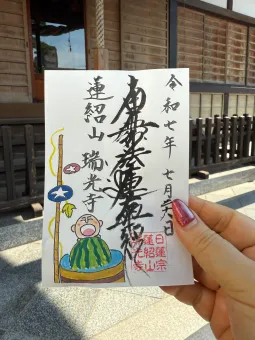 令和七年 七月
南無妙法蓮華経
蓮紹山 瑞光寺
日蓮宗
蓮紹山
瑞光寺